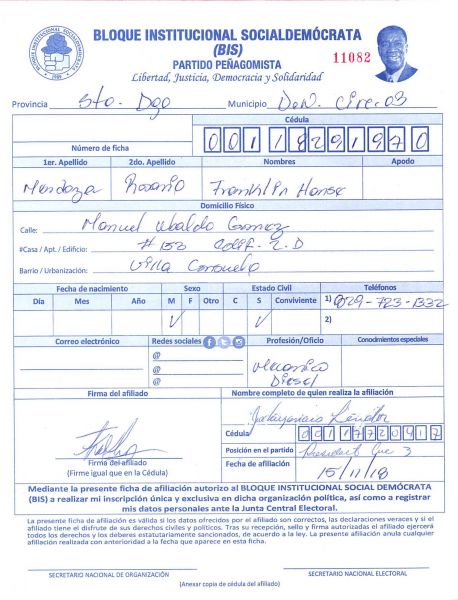 BLOQUE INSTITUCIONAL SOCIALDEMÓCRATA
(BIS)
PARTIDO PEÑAGOMISTA
11082
Libertad, Justicia, Democracia y Solidaridad
Provincia Sto. Dgo Municipio
Cédula
Número de ficha 0 0 1 1 8 2 9 1 9 7 0
1er. Apellido 2do. Apellido Nombres Apodo
Mendoza Rosario Franklin
Domicilio Físico
Calle: Manuel Ubaldo Gomez
#Casa / Apt. / Edificio: # 153 Edif. 2-D
Barrio / Urbanización: Villa Consuelo
Fecha de nacimiento Sexo Estado Civil Teléfonos
Día Mes Año M F Otro C S Conviviente 1) 829-723-1332
2)
Correo electrónico Redes sociales Profesión/Oficio Conocimientos especiales
@
@
@
Mecanico
Diesel
Firma del afiliado Nombre completo de quien realiza la afiliación
Cédula 0 0 1 1 7 7 2 0 9 1 7
Posición en el partido
Firma del afiliado
(Firme igual que en la Cédula)
Fecha de afiliación 15/11/18
Mediante la presente ficha de afiliación autorizo al BLOQUE INSTITUCIONAL SOCIAL DEMÓCRATA
(BIS) a realizar mi inscripción única y exclusiva en dicha organización política, así como a registrar
mis datos personales ante la Junta Central Electoral.
La presente ficha de afiliación es válida si los datos ofrecidos por el afiliado son correctos, las declaraciones veraces y si el
afiliado tiene el disfrute de sus derechos civiles y políticos. Tras su recepción, sello y firma autorizadas el afiliado ejercerá
todos los derechos y los deberes estatutariamente sancionados, de acuerdo a la ley. La presente afiliación anula cualquier
afiliación realizada con anterioridad a la fecha que aparece en esta ficha.
SECRETARIO NACIONAL DE ORGANIZACIÓN SECRETARIO NACIONAL ELECTORAL
(Anexar copia de cédula del afiliado)